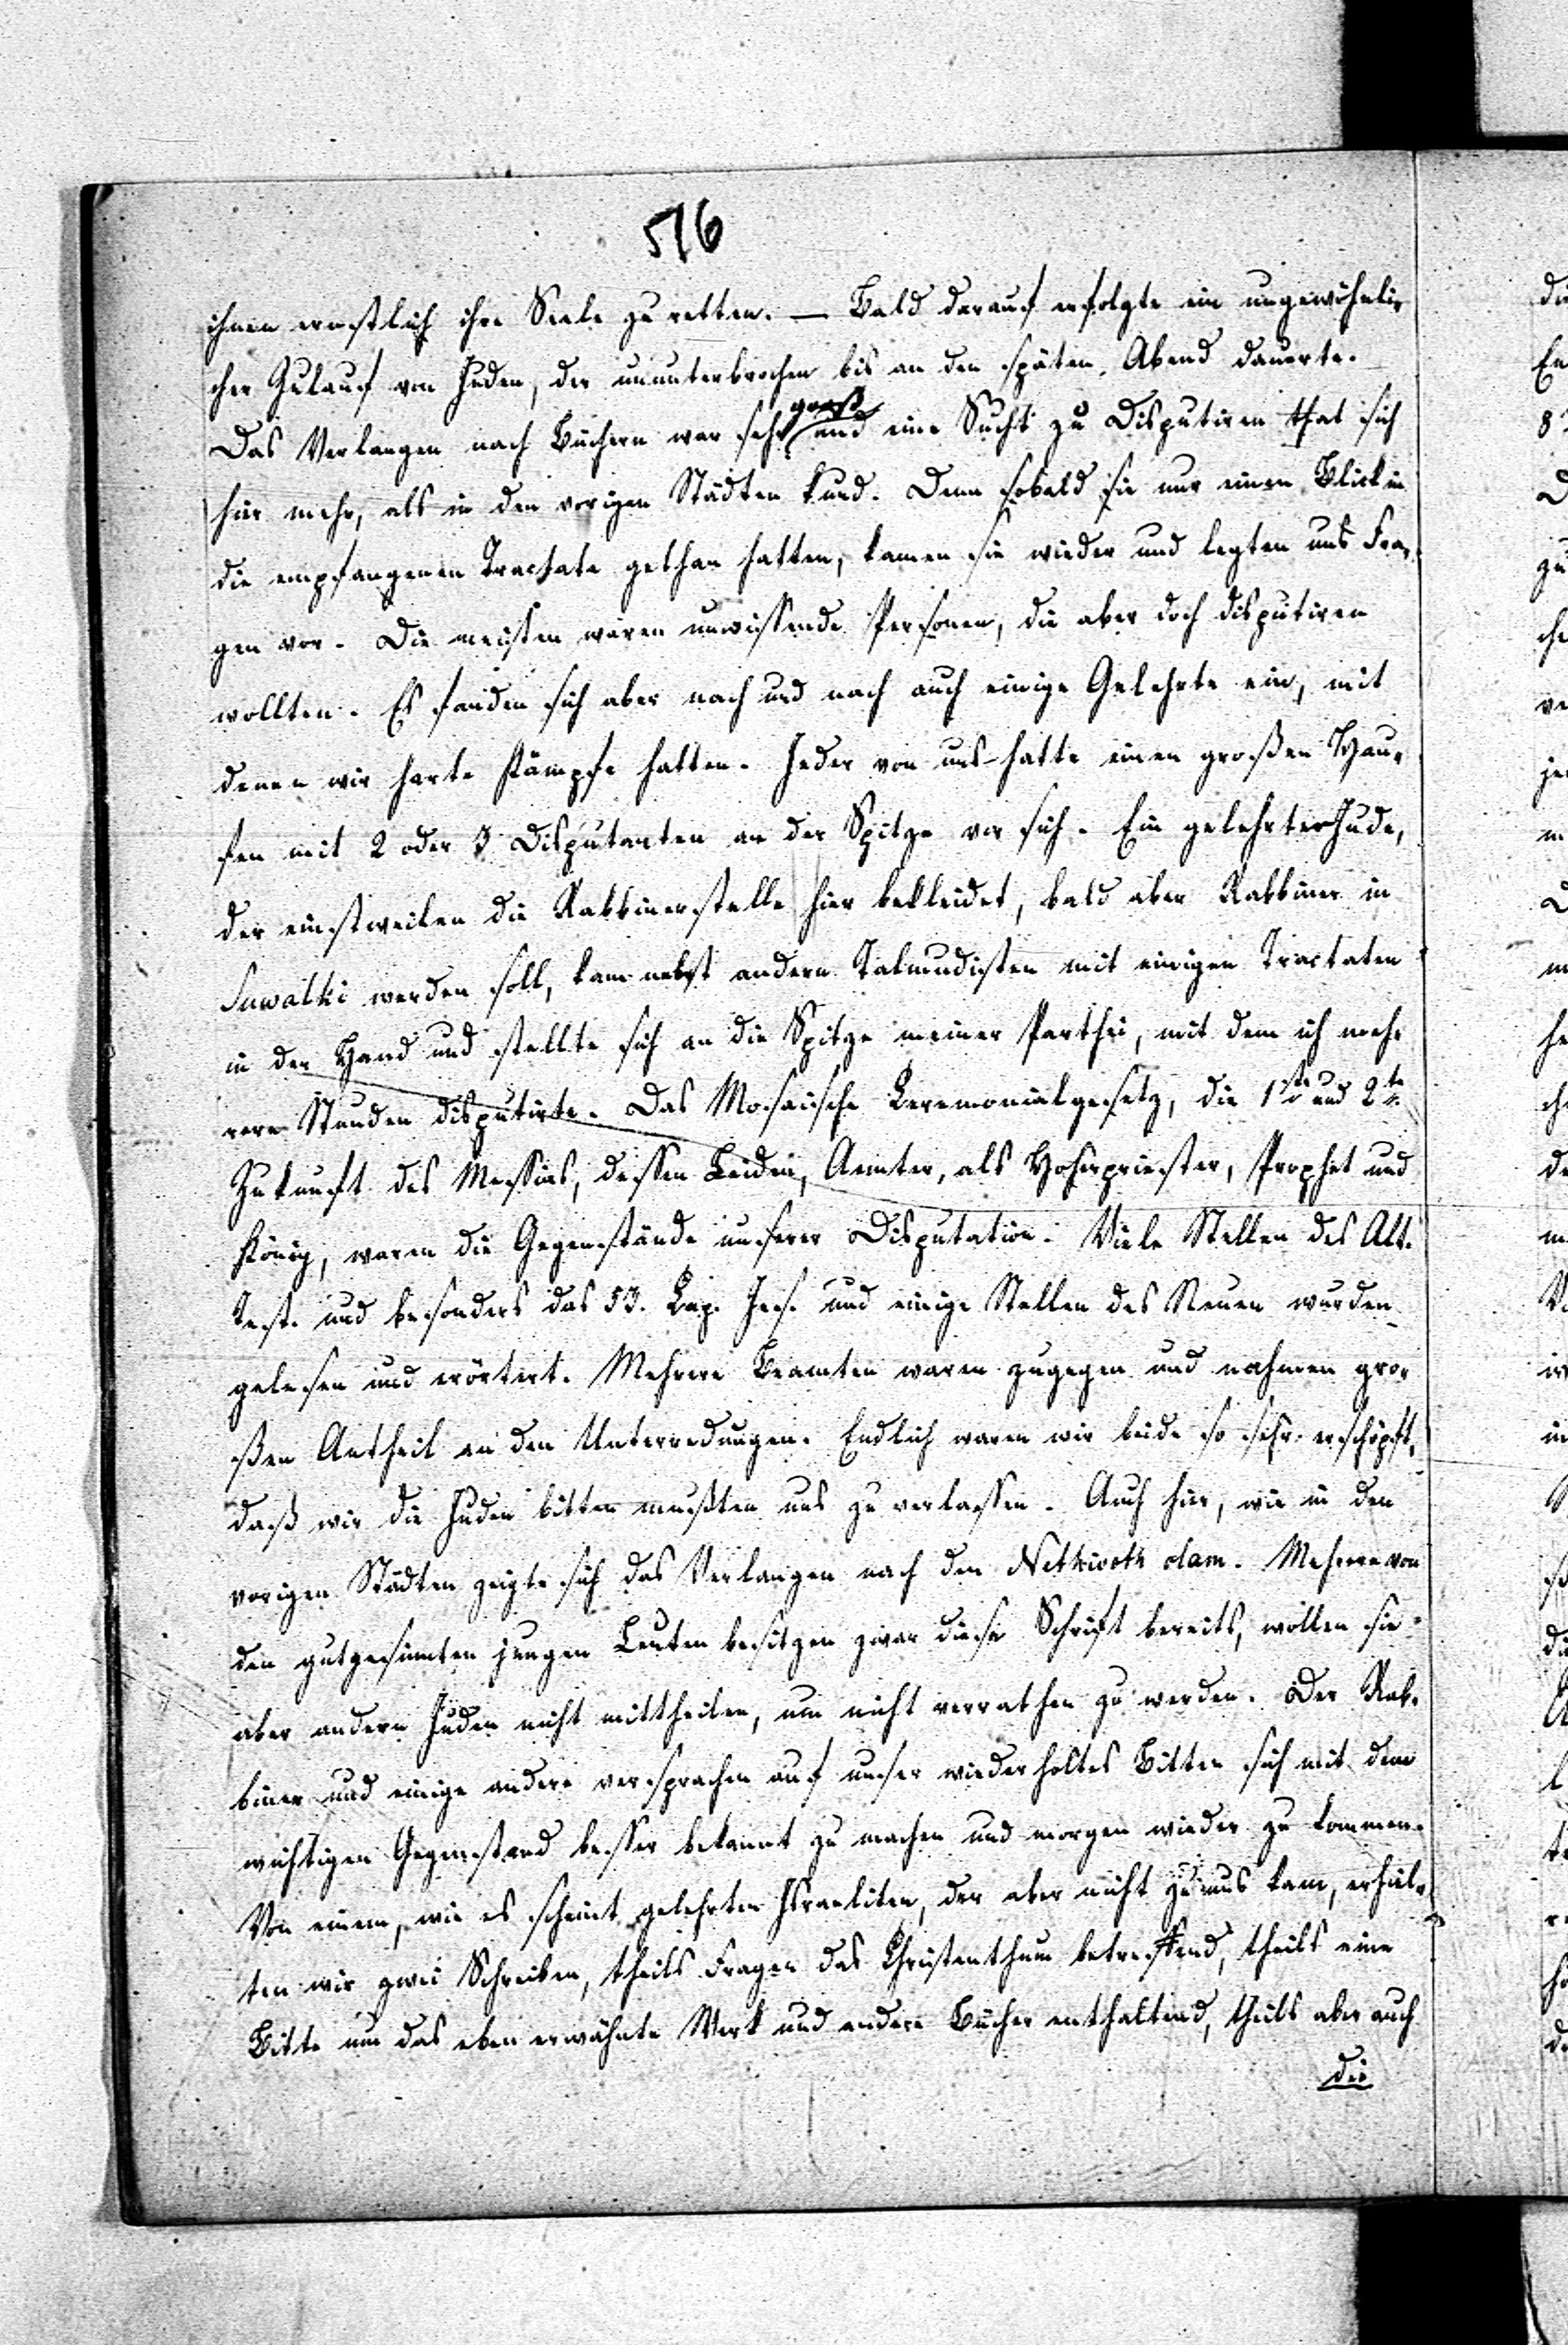 576
ihnen ernstlich ihre Seele zu retten. — Bald darauf erfolgte ein ungewöhnli-
cher Zulauf von Juden, der ununterbrochen bis an den späten Abend dauerte.
groß
Das Verlangen nach Büchern war sehr und eine Sucht zu Disputiren that sich
hier mehr, als in den vorigen Städten kund. Denn sobald sie nur einen Blick in
die empfangenen Tractate gethan hatten, kamen sie wieder und legten uns Fra-
gen vor. Die meisten waren unwissende Personen, die aber doch disputiren
wollten. Es fanden sich aber nach und nach auch einige Gelehrte ein, mit
denen wir harte Kämpfe hatten. Jeder von uns hatte einen großen Hau-
fen mit 2 oder 3 Disputanten an der Spitze vor sich. Ein gelehrter Jude,
der einstweilen die Rabbinerstelle hier bekleidet, bald aber Rabbiner in
Suwalki werden soll, kam nebst andern Talmudisten mit einigen Tractaten
in der Hand und stellte sich an die Spitze meiner Parthei, mit dem ich meh-
rere Stunden disputirte. Das Mosaische Ceremonialgesetz, die 1ste und 2te
Zukunft des Messias, dessen Leiden, Aemter, als Hoherpriester, Prophet und
König, waren die Gegenstände unserer Disputation. Viele Stellen des Alt.
Test. und besonders das 53. Cap. Jes. und einige Stellen des Neuen wurden
gelesen und erörtert. Mehrere Beamten waren zugegen und nahmen gro-
ßen Antheil an den Unterredungen. Endlich waren wir beide so sehr erschöpft,
daß wir die Juden bitten mußten uns zu verlassen. Auch hier, wie in den
vorigen Städten zeigte sich das Verlangen nach den Nethiwoth olam. Mehrere von
den gutgesinnten jungen Leuten besitzen zwar diese Schrift bereits, wollen sie
aber andern Juden nicht mittheilen, um nicht verrathen zu werden. Der Rab-
biner und einige andere versprachen auf unser wiederholtes Bitten sich mit dem
wichtigen Gegenstand besser bekannt zu machen und morgen wieder zu kommen.
Von einem, wie es scheint gelehrten Israeliten, der aber nicht zu uns kam, erhiel-
ten wir zwei Schreiben, theils Fragen das Christenthum betreffend, theils eine
Bitte um das eben erwähnte Werk und andere Bücher enthaltend, theils aber auch
die